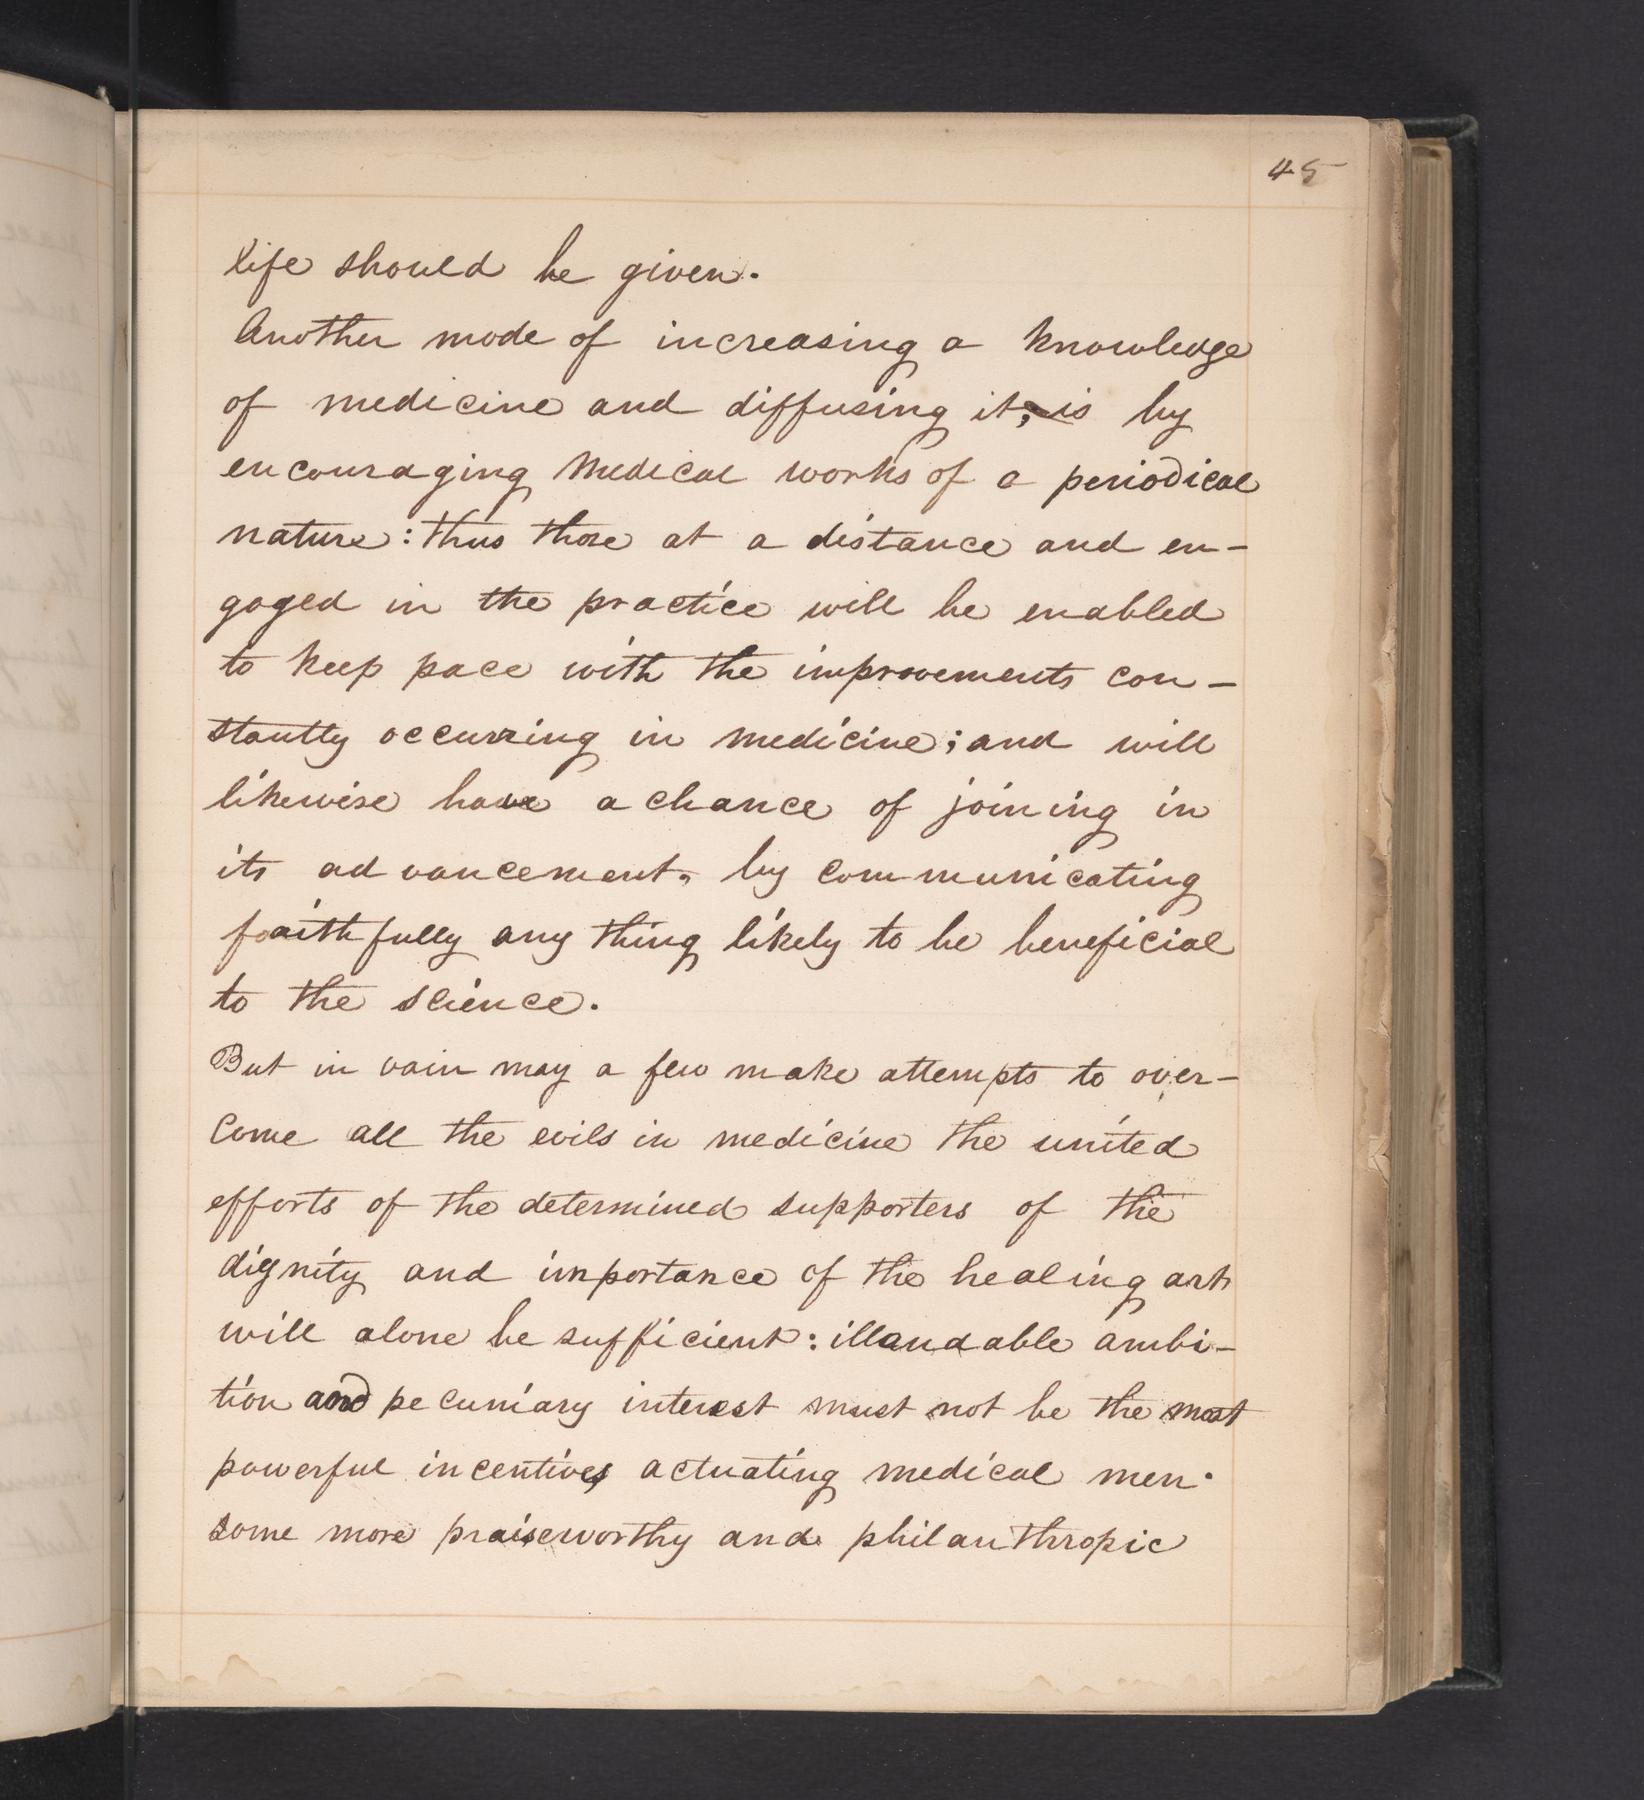 45
life should be given.
Another mode of increasing a knowledge
of medicine and diffusing it, is by
encouraging Medical works of a periodical
nature: thus those at a distance and en-
gaged in the practice will be enabled
to keep pace with the improvements con-
stantly occurring in medicine; and will
likewise have a chance of joining in
its advancement, by communicating
faithfully any thing likely to be beneficial
to the science.
But in vain may a few make attempts to over-
come all the evils in medicine the united
efforts of the determined supporters of the
dignity and importance of the healing art
will alone be sufficient: illaudable ambi-
tion and pecuniary interest must not be the most
powerful incentives actuating medical men.
Some more praiseworthy and philanthropic